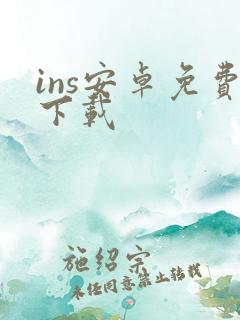 ins安卓免费
下载
施绍宗
未经同意禁止转载